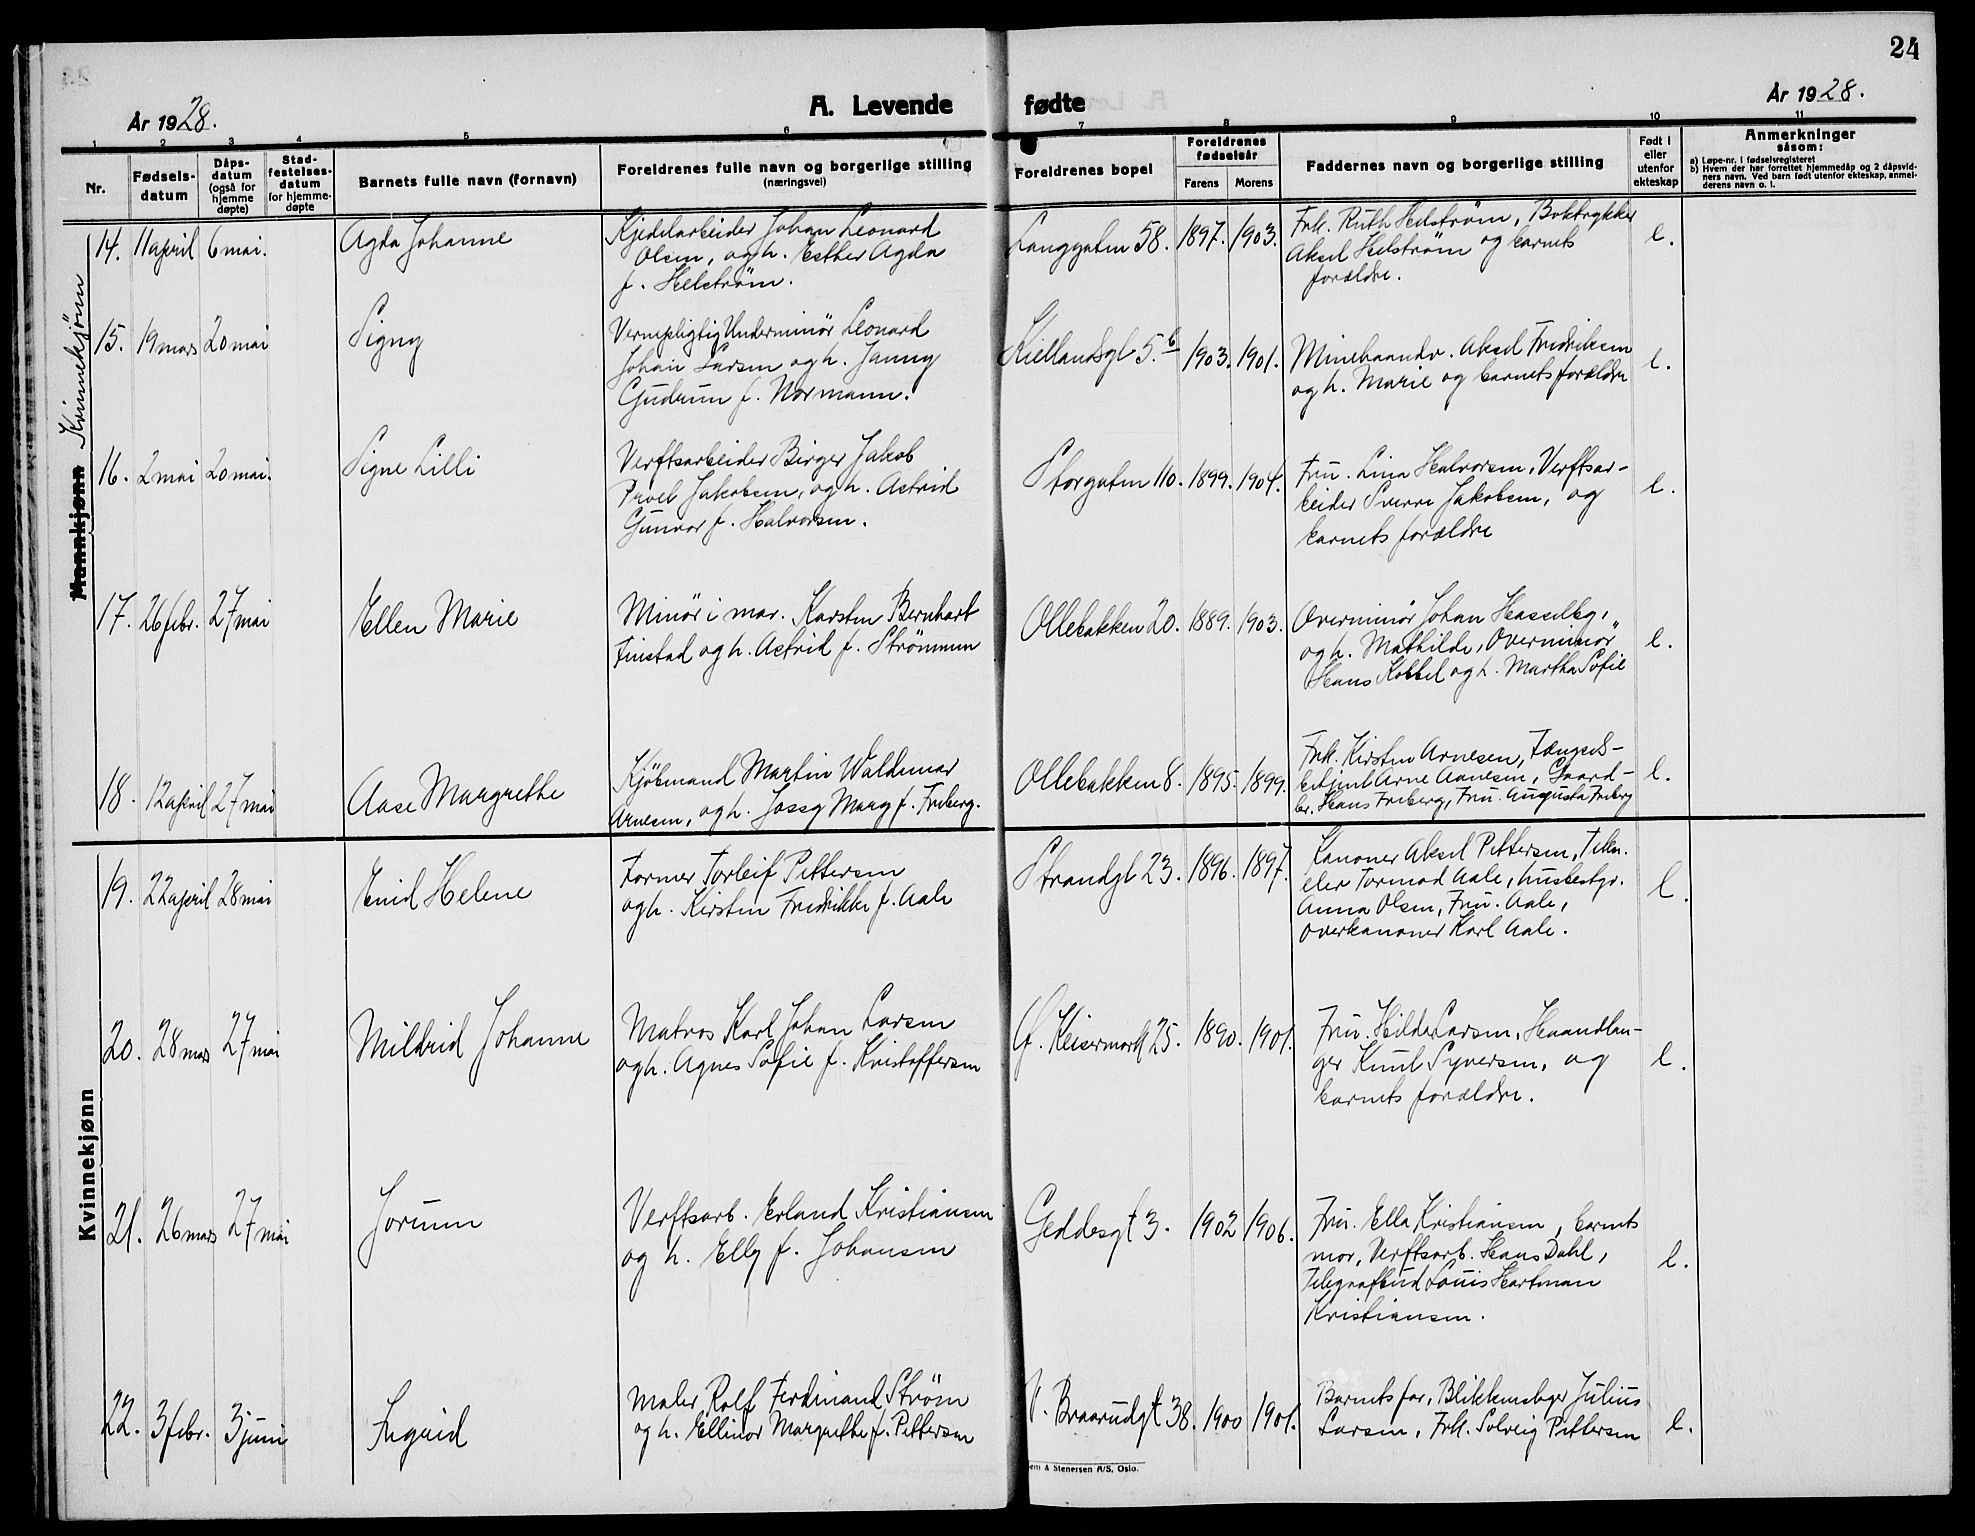 24
År 1928.
A. Levende fødte
År 1928.
1 2 3 4 5 6 7 8 9 10 11
Nr.
Fødsels-
datum
Dåps-
datum
(også for
hjemme
døpte)
Stad-
festelses-
datum
for hjemme-
døpte
Barnets fulle navn (fornavn)
Foreldrenes fulle navn og borgerlige stilling
(næringsvei)
Foreldrenes bopel
Foreldrenes
fødselsår
Farens Morens
Faddernes navn og borgerlige stilling
Født i
eller
utenfor
ekteskap
Anmerkninger
såsom:
a) Løpe-nr. i fødselsregisteret
b) Hvem der har forrettet hjemmedåp og 2 dåpsvid-
ners navn. Ved barn født utenfor ekteskap, anmel-
derens navn o. l.
Mannkjønn Kvinnekjønn
14. 11 april 6 mai. Agda Johanne
Kjedelarbeider Johan Leonard
Olsen, og h. Esther Agda
f. Helström.
Langgaten 58. 1897. 1903.
Frk. Ruth Helström, Boktrykker
Aksel Helström og barnets
forældre.
e.
15. 19 mars 20 mai Signy
Vernepligtig Underminör Leonard
Johan Larsen og h. Jenny
Gudrun f. Normann.
Kiellandsgt 5.b 1903. 1901.
Minehaandv. Aksel Fredriksen
og h. Marie og barnets forældre
e.
16. 2 mai 20 mai. Signe Lilli
Verftsarbeider Birger Jakob
Jakobsen, og h. Astrid
Gunvor f. Halvorsen.
Storgaten 110. 1899. 1904.
Fru. Lina Halvorsen, Verftsar-
beider Sverre Jakobsen, og
barnets forældre
e.
17. 26 febr. 27 mai Ellen Marie
Minör i mar. Karsten Bernhart
Finstad og h. Astrid f. Strömmen
Ollebakken 20. 1889. 1903.
Overminör Johan Hasselbg,
og h. Mathilde, Overminör
Hans Kobbel og h. Martha Sofie
e.
18. 12 april 27 mai Aase Margrethe
Kjöbmand Martin Waldemar
Arnesen, og h. Jossy Mary f. Friberg.
Ollebakken 8. 1895. 1899.
Frk. Kirsten Arnesen, Fængsels-
betjent Arne Arnesen, Gaard-
br. Hans Friberg, Fru. Augusta Friberg
e.
Kvinnekjønn
19. 22 april 28 mai Enid Helene
Former Torleif Pettersen
og h. Kirsten Fredrikke f. Aale
Strandgt 23. 1896. 1897.
Kanoner Aksel Pettersen, Tekn.
elev Tormod Aale, husbestyr.
Anna Olsen, Fru. Aale,
overkanoner Karl Aale.
e.
20. 28 mars 27 mai Mildrid Johanne
Matros Karl Johan Larsen
og h. Agnes Sofie f. Kristoffersen
Keisermark 25. 1890. 1901.
Fru. Hilda Larsen, Haandlan-
ger Knut Syversen, og
barnets forældre.
e.
21. 26 mars 27 mai Jorunn
Verftsarb. Erland Kristiansen
og h. Elly f. Johansen
Geddesgt 3. 1902 1906.
Fru. Ella Kristiansen, barnets
mor, Verftsarb. Hans Dahl,
Telegrafbud Louis Hartman
Kristiansen.
e.
22. 3 febr. 3 juni Ingrid
Maler Rolf Ferdinand Ström
og h. Ellinor Margrethe f. Pettersen
V. Braarudgt 38. 1900 1901.
Barnets far, Blikkenslager Julius
Larsen, Frk. Solveig Pettersen
e.
em & Stenersen A/S, Oslo.